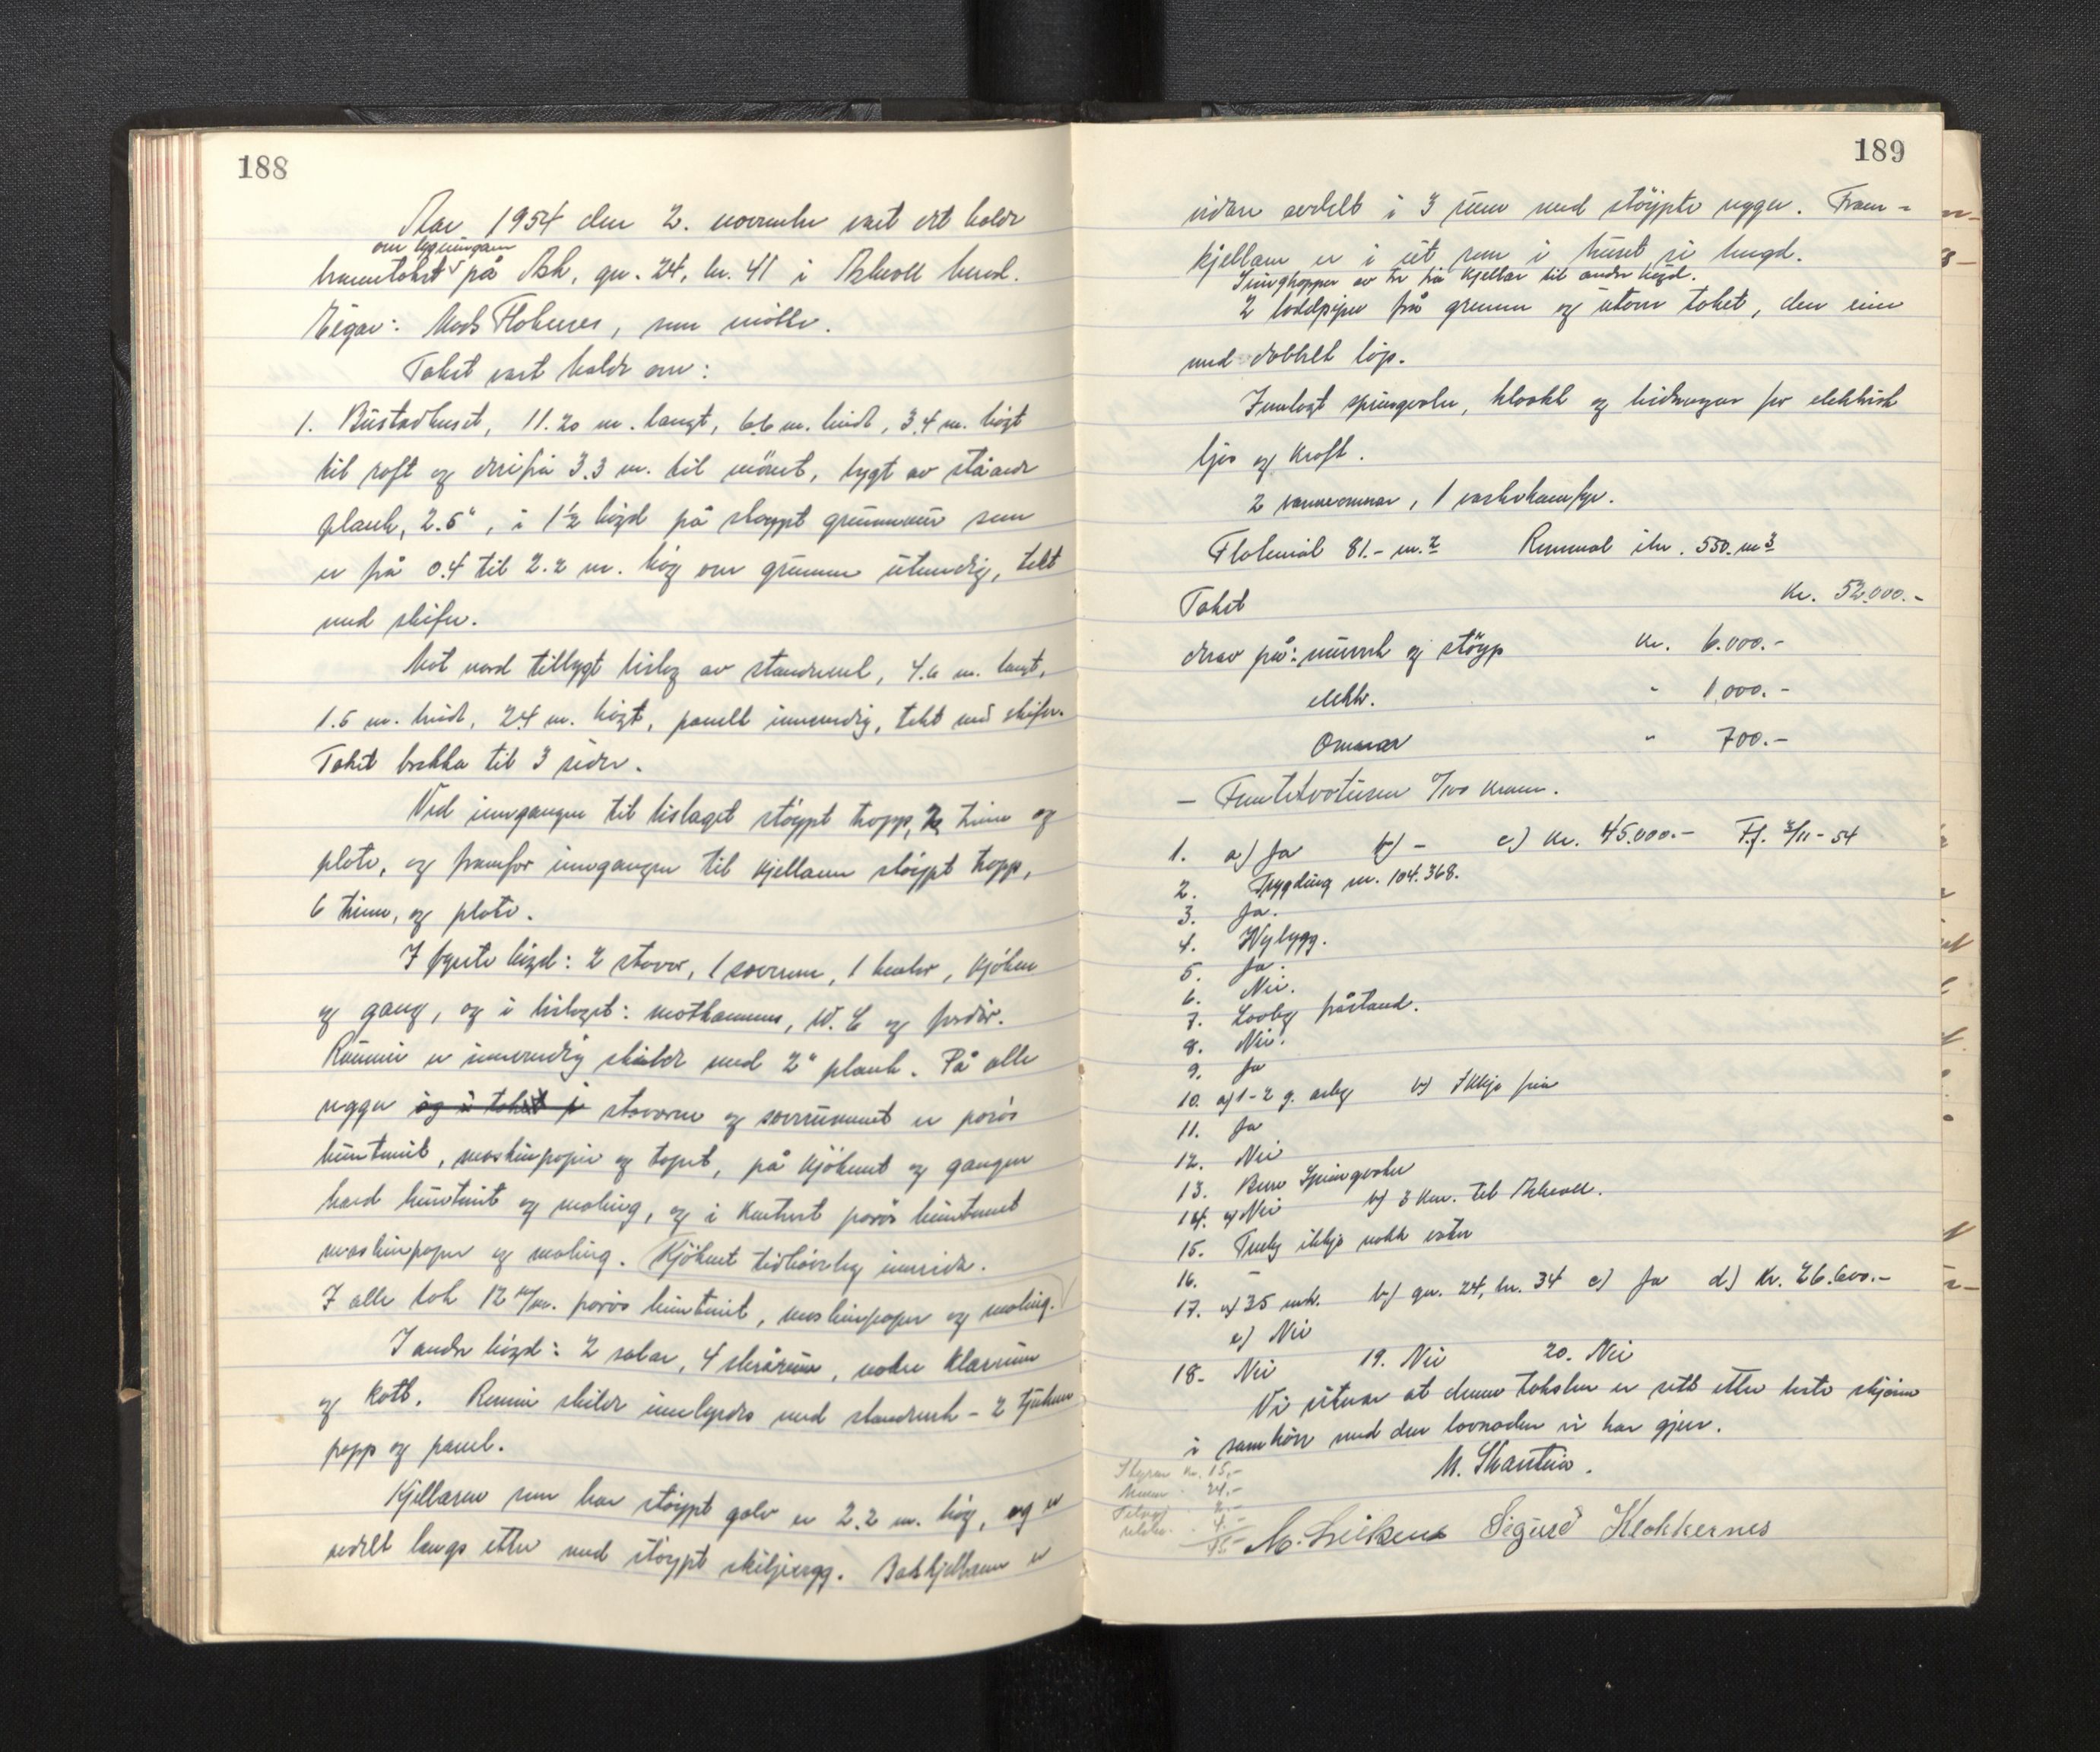 188
Aar 1954 den 2. november vart det halde
om bygningane
branntakst på Ask, gnr. 24, bnr. 41 i Askvoll herad.
Eigar: Mads Flokenes, som møtte.
Takst vart halde over:
1. Bustadhuset, 11.20 m. langt, 6.6 m. breidt, 3.4 m. høgt
til roft og derifrå 3.3 m. til mønet, bygt av ståande
plank, 2.5", i 1½ høgd på støypt grunnmur som
er frå 0.4 til 2.2 m. høg over grunnen utvendig, tekt
med skifer.
Mot nord tilbygt bislag av standverk, 4.6 m. langt,
1.5 m. breidt, 2.4 m. høgt, panelt innvendig, tekt med skifer.
Taket brekka til 3 sider.
Ved inngangen til bislaget støypt trapp, trinn og
plate, og framfor inngangen til kjellaren støypt trapp,
6 trinn, og plate.
I fyrste høgd: 2 stover, 1 soverum, 1 kontor, kjøken
og gang, og i bislaget: matkammers, W.C og
Rummi er innvendig skilde med 2" plank. På alle
vegger og i taket i stovorne og soverummet er porøs
huntonit, maskinpapir og tapet, på kjøkenet og gangen
hard huntonit og maling, og i kontoret porøs huntonit
maskinpapir og maling. Kjøkenet tidhøveleg innreidt.
I alle tak 12 m/m. porøs huntonit, maskinpapir og maling.
I andre høgd: 2 salar, 4 skrårum, nokre klærum
og kott. Rummi skilde innbyrdes med standverk - 2
papp og panel.
Kjellaren som har støypt golv er 2.2 m. høg, og er
avdelt langs etter med støypt skiljevegg. Bakkjellaren er
189
vidare avdelt i 3 rum med støypte vegger. Fram-
kjellaren er i eit rum i huset si lengd.
Trapper av tre frå kjellar til andre høgd.
2 teglpiper frå grunnen og utover taket, den eine
med dobbelt løp.
Innlagt springvatn, kloakk og leidningar for elektrisk
ljos og kraft.
2 vanneomnar, 1 vaskekamfyr.
Flatemål 81.- m.2 Rummål ibr. 550. m3
Takst kr. 52.000.-
derav på: murverk og støyp kr. 6.000.-
elektr. " 1.000.-
Omnar " 700.-
- Funtetvoturen 7/100 kronor.
1. a) Ja b) - c) kr. 45.000.- F.f. 3/11-54
2. Trygding nr. 104.368.
3. Ja.
4. Nybygg.
5. Ja.
6. Nei.
7. Lovleg fråstand.
8. Nei.
9. Ja
10. a) 1-2 g. årleg b) Ikkje
11. Ja
12. Nei
13. Berre Springvatn
14. a) Nei b) 3 km. til Askvoll.
15. Truleg ikkje nokk vatn
16. -
17. a) 35 mk. b) gnr. 24, bnr. 34 c) Ja d) Kr. 26.600.-
e) Nei
18. Nei 19. Nei 20. Nei
Vi vitnar at denne taksten er sett etter beste skjønn
i samhøve med den lovnaden vi har gjeve.
Styrar kr. 15.-
24.-
2.-
4.-
M. Skarstein.
Sigurd Klokkernes